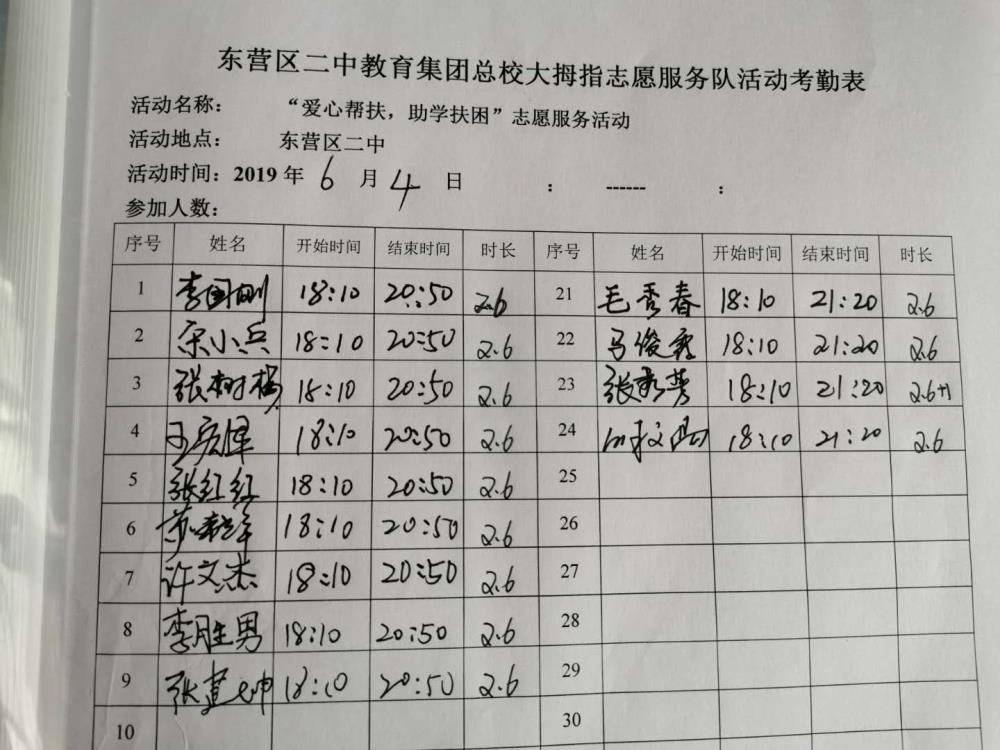 东营区二中教育集团总校大拇指志愿服务队活动考勤表
活动名称： “爱心帮扶，助学扶困”志愿服务活动
活动地点： 东营区二中
活动时间：2019 年 6 月 4 日 ： ------ ：
参加人数：
序号 姓名 开始时间 结束时间 时长 序号 姓名 开始时间 结束时间 时长
1 李国刚 18:10 20:50 2.6 21 毛秀春 18:10 21:20 2.6
2 宋小兵 18:10 20:50 2.6 22 马俊秀 18:10 21:20 2.6
3 张树梅 18:10 20:50 2.6 23 张秀芳 18:10 21:20 2.6+1
4 18:10 20:50 2.6 24 18:10 21:20 2.6
5 张红红 18:10 20:50 2.6 25
6 18:10 20:50 2.6 26
7 许文杰 18:10 20:50 2.6 27
8 李胜男 18:10 20:50 2.6 28
9 张建坤 18:10 20:50 2.6 29
10 30